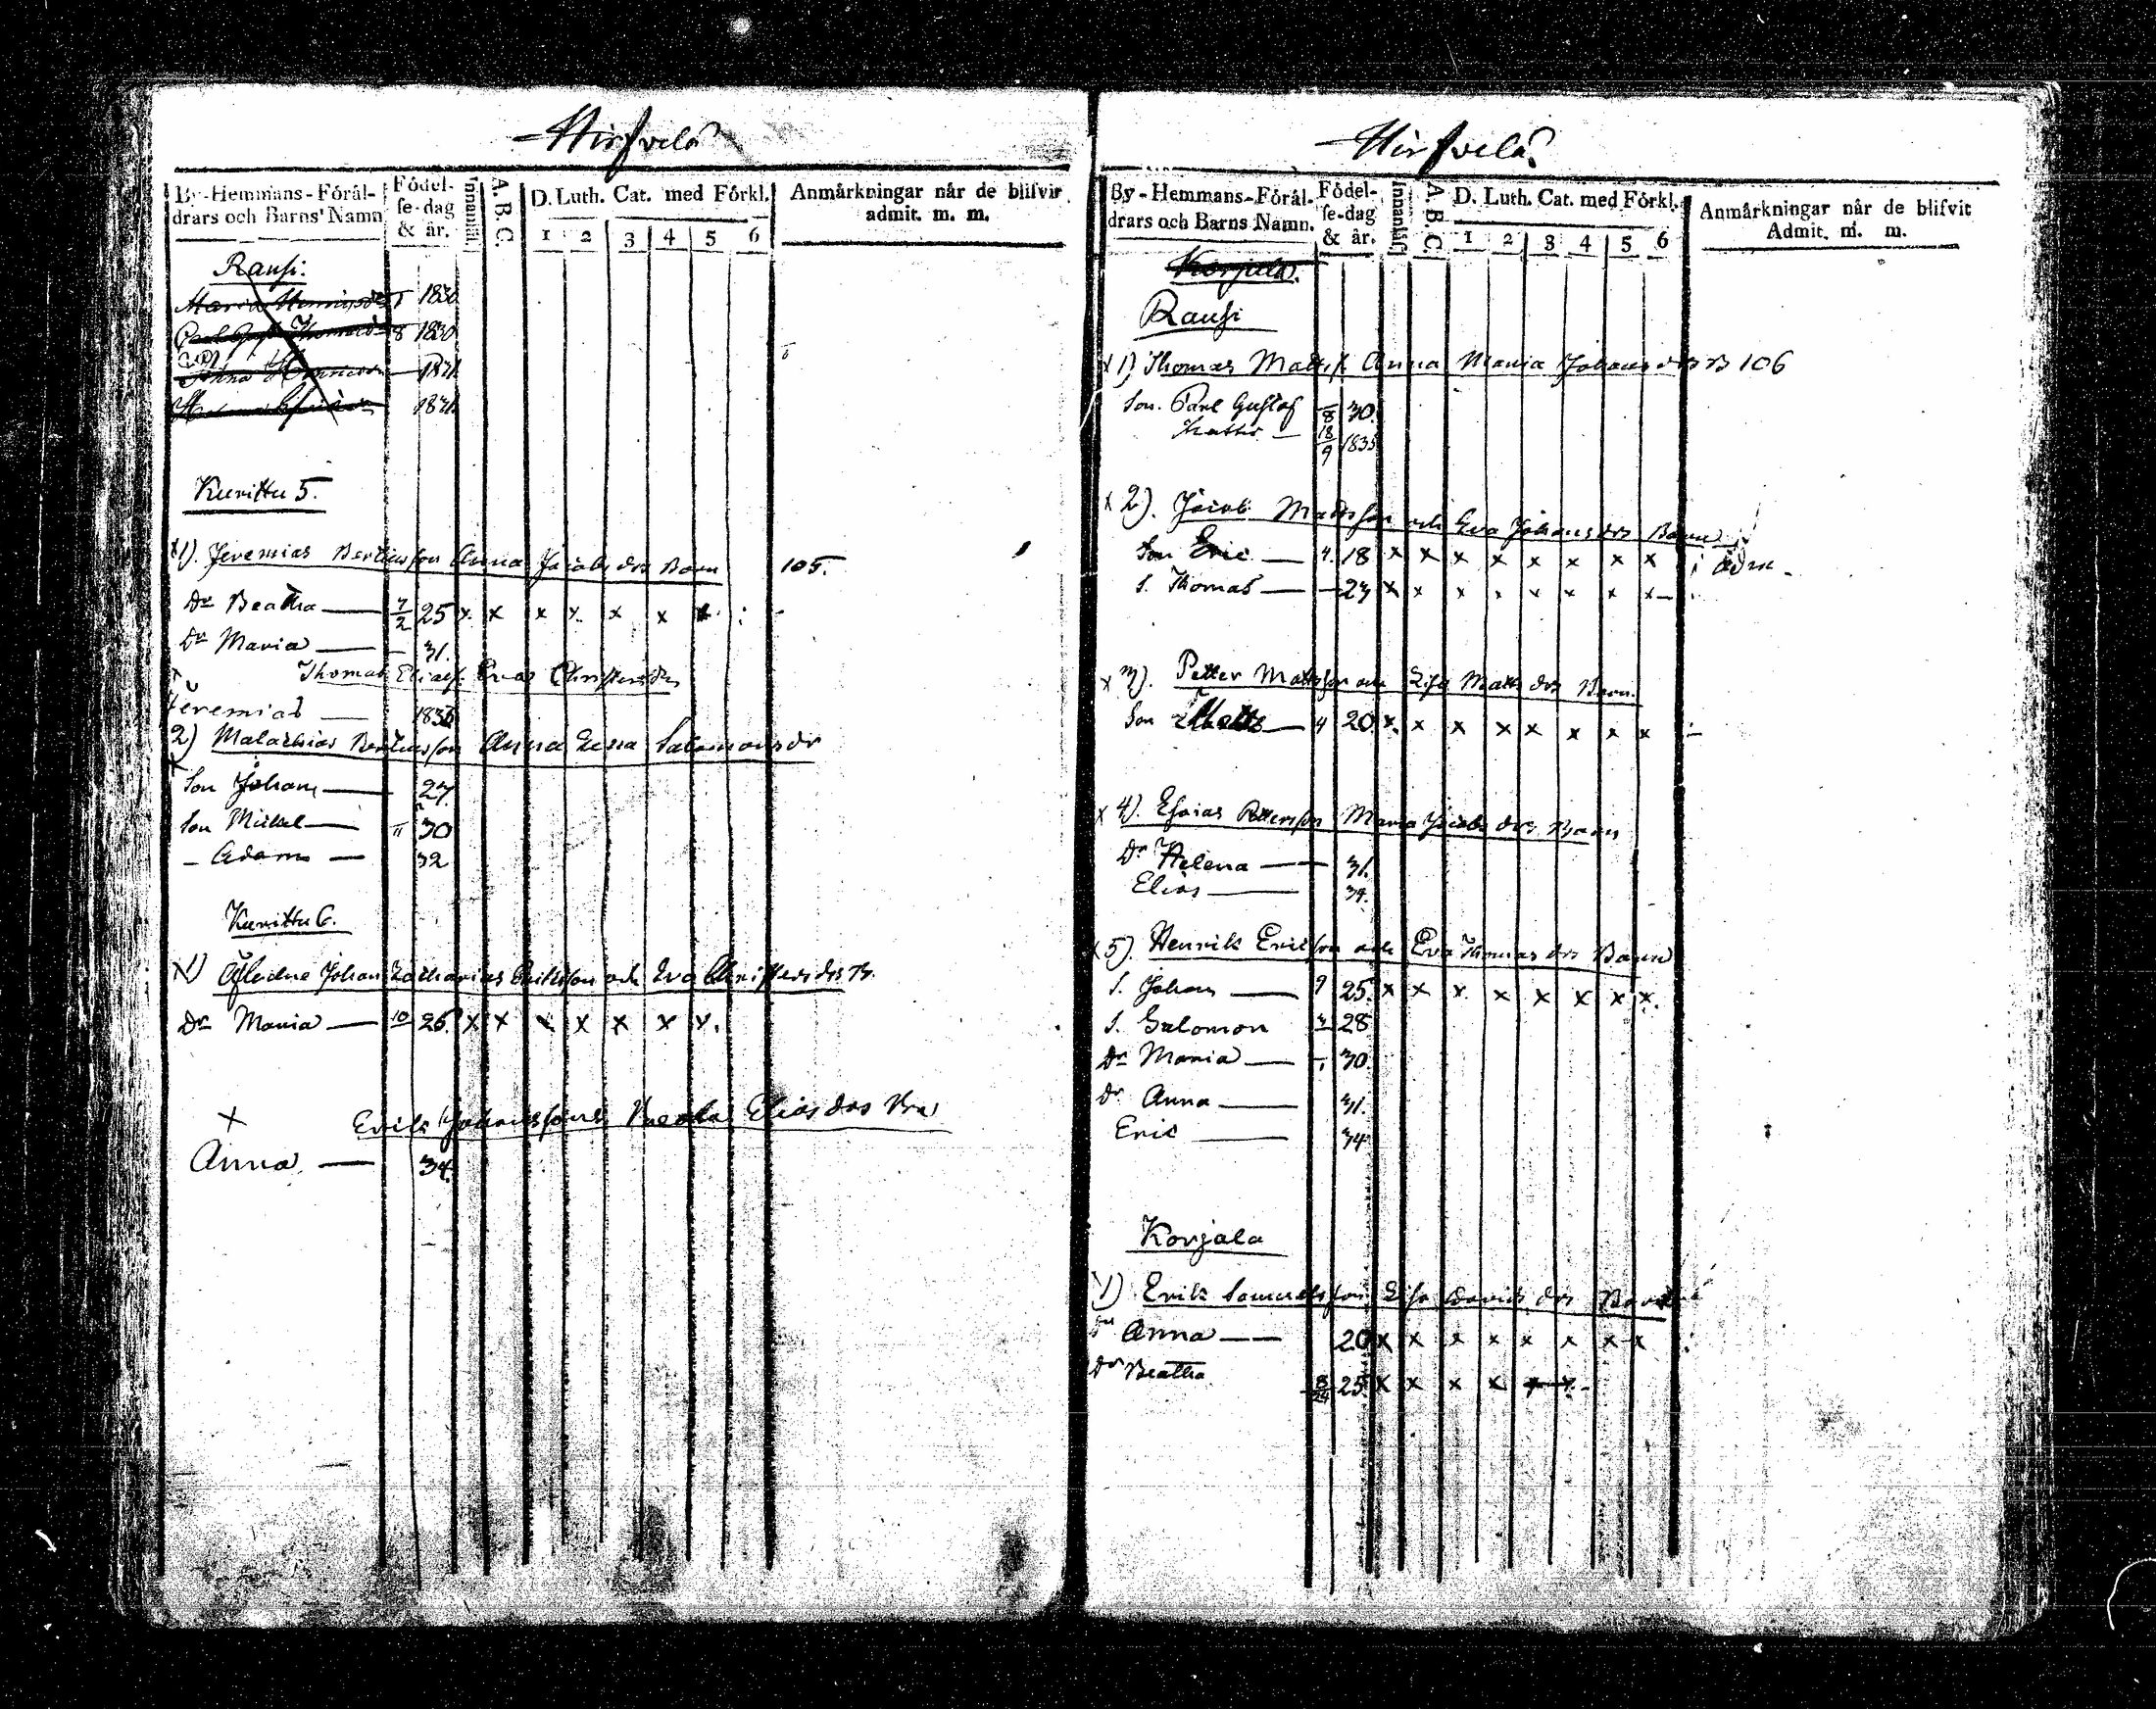 Hirfvelä
By-Hemmans-Förål-
drars och Barns' Namn
Födel-
se-dag
& år.
Innanläs.
A. B. C.
D. Luth. Cat. med Förkl.
1 2 3 4 5 6
Anmårkningar når de blifvit
admit. m. m.
Rausi.
Maria 1830
Carl Gust. 8 1830
Anna 1831
183
Kurittu 5.
x 1). Jeremias Bertilsson Anna Jacobs dr Barn 105.
Dr Beatha — 7/2 25 x x x x x x x
Dr Maria — 31.
Thomas Eliass. Eva Christersdr
Jeremias — 1836
2) Malachias Bertilsson Anna Lena Salomonsdr
x
Son Johan — 27.
Son Mickel — 11 30
– Adam — 32
Kurittu 6.
x 1) Aflidne Johan Zacharias Erikson och Eva Christersdrs B.
Dr Maria — 10 26. x x x x x x x.
x Erik Johanssons Beata Eliasdrs Bn
Anna. — 34.
Hirfvelä
By-Hemmans-Förål-
drars och Barns Namn.
Födel-
se-dag
& år.
Innanläs.
A. B. C
D. Luth. Cat. med Förkl.
1 2 3 4 5 6
Anmårkningar når de blifvit
Admit. m. m.
Korjala.
Rausi
x 1) Thomas Matts. Anna Maria Johans drs B 106
Son. Carl Gustaf 8 30.
Matts — 18/9 1835
x 2). Jacob Mattsson och Eva Johans drs Barn
Son Eric — 4. 18 x x x x x x x x adm.
S. Thomas — 27 x x x x x x x x
x 3). Petter Mattsson och Lisa Matts drs Barn.
Son Matts — 4 20. x x x x x x x x
x 4). Esaias Petersson Maria Jacobs drs Barn
Dr Helena — 31.
Elias — 34.
x 5). Henrik Ericsson och Eva Thomas drs Barn
S. Johan — 9 25. x x x x x x x x.
S. Salomon 3 28
Dr Maria — 30.
Dr Anna — 31.
Eric — 34
Korjala
1) Erik Samuelsson Lisa Davids drs Barn
Dr Anna — 20 x x x x x x x x
Dr Beatha 8/24 25. x x x x x x